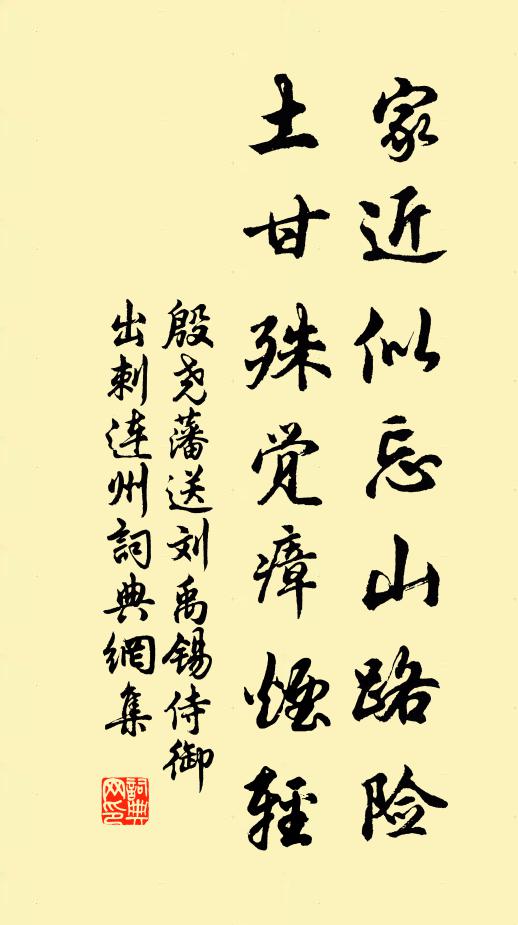 家近似忘山路险
土甘殊觉瘴煙轻
殷尧藩送刘禹锡侍御
出刺连州詞典網集
詞典
网印